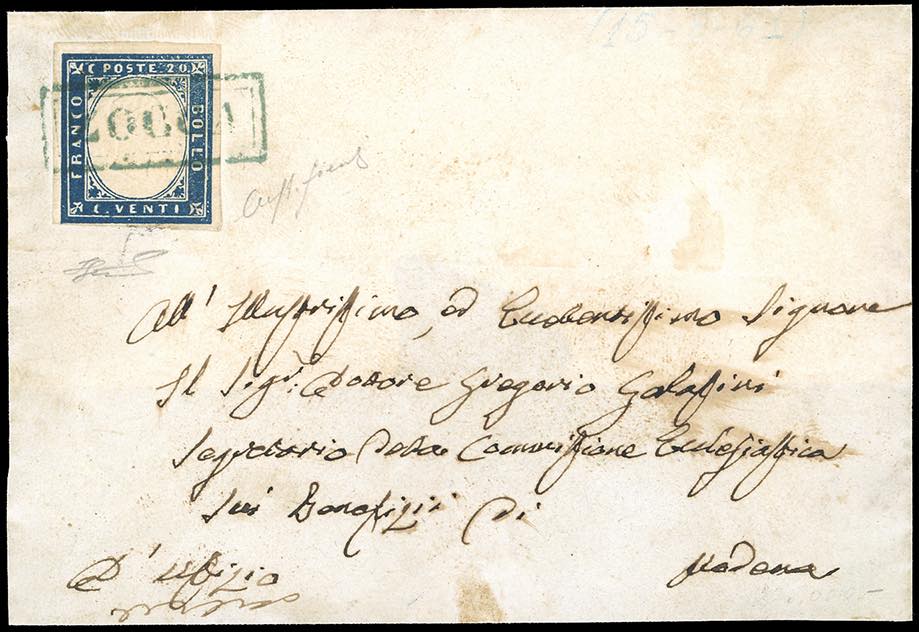 (15-8-61)
C POSTE 20
FRANCO
BOLLO
C. VENTI
All' Illustrissimo, ed Eccellentissimo Signore
Il Sigr. Dottore Gregorio
Segretario della Commissione Ecclesiastica
sui Benefizii di
Modena
D' uffizio